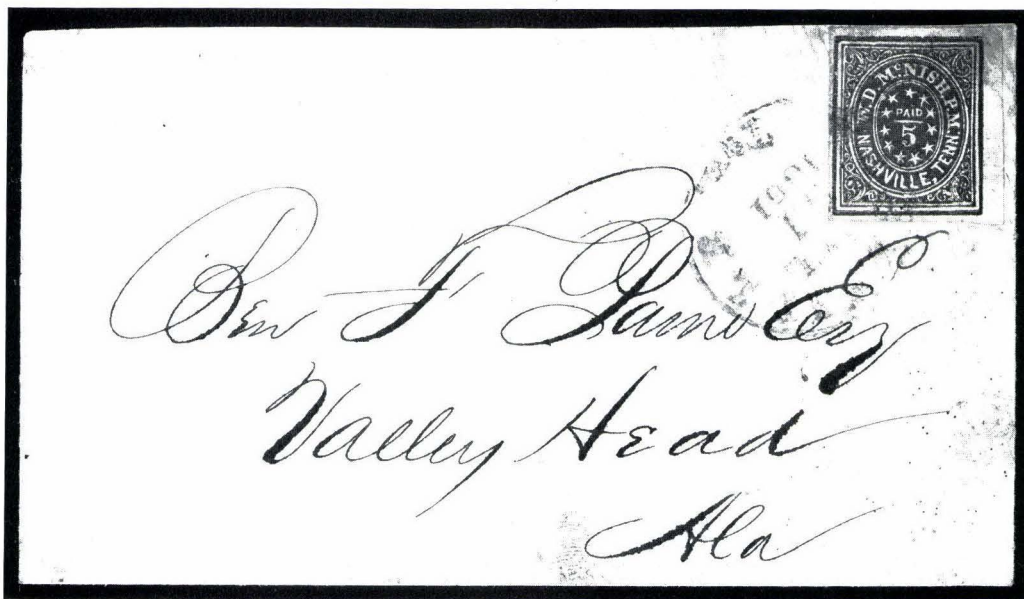 W.D. McNISH, P.M.
PAID
5
NASHVILLE, TENN.
1861
Ben F
Valley Head
Ala